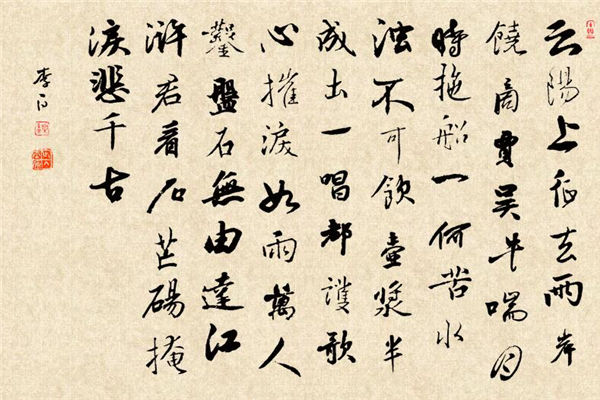 云陽上征去兩岸
饒商賈吴牛喘月
時拖船一何苦水
浊不可飲壺漿半
成土一唱都護歌
心摧淚如雨萬人
鑿盤石無由達江
滸君看石芒碭掩
淚悲千古
李白